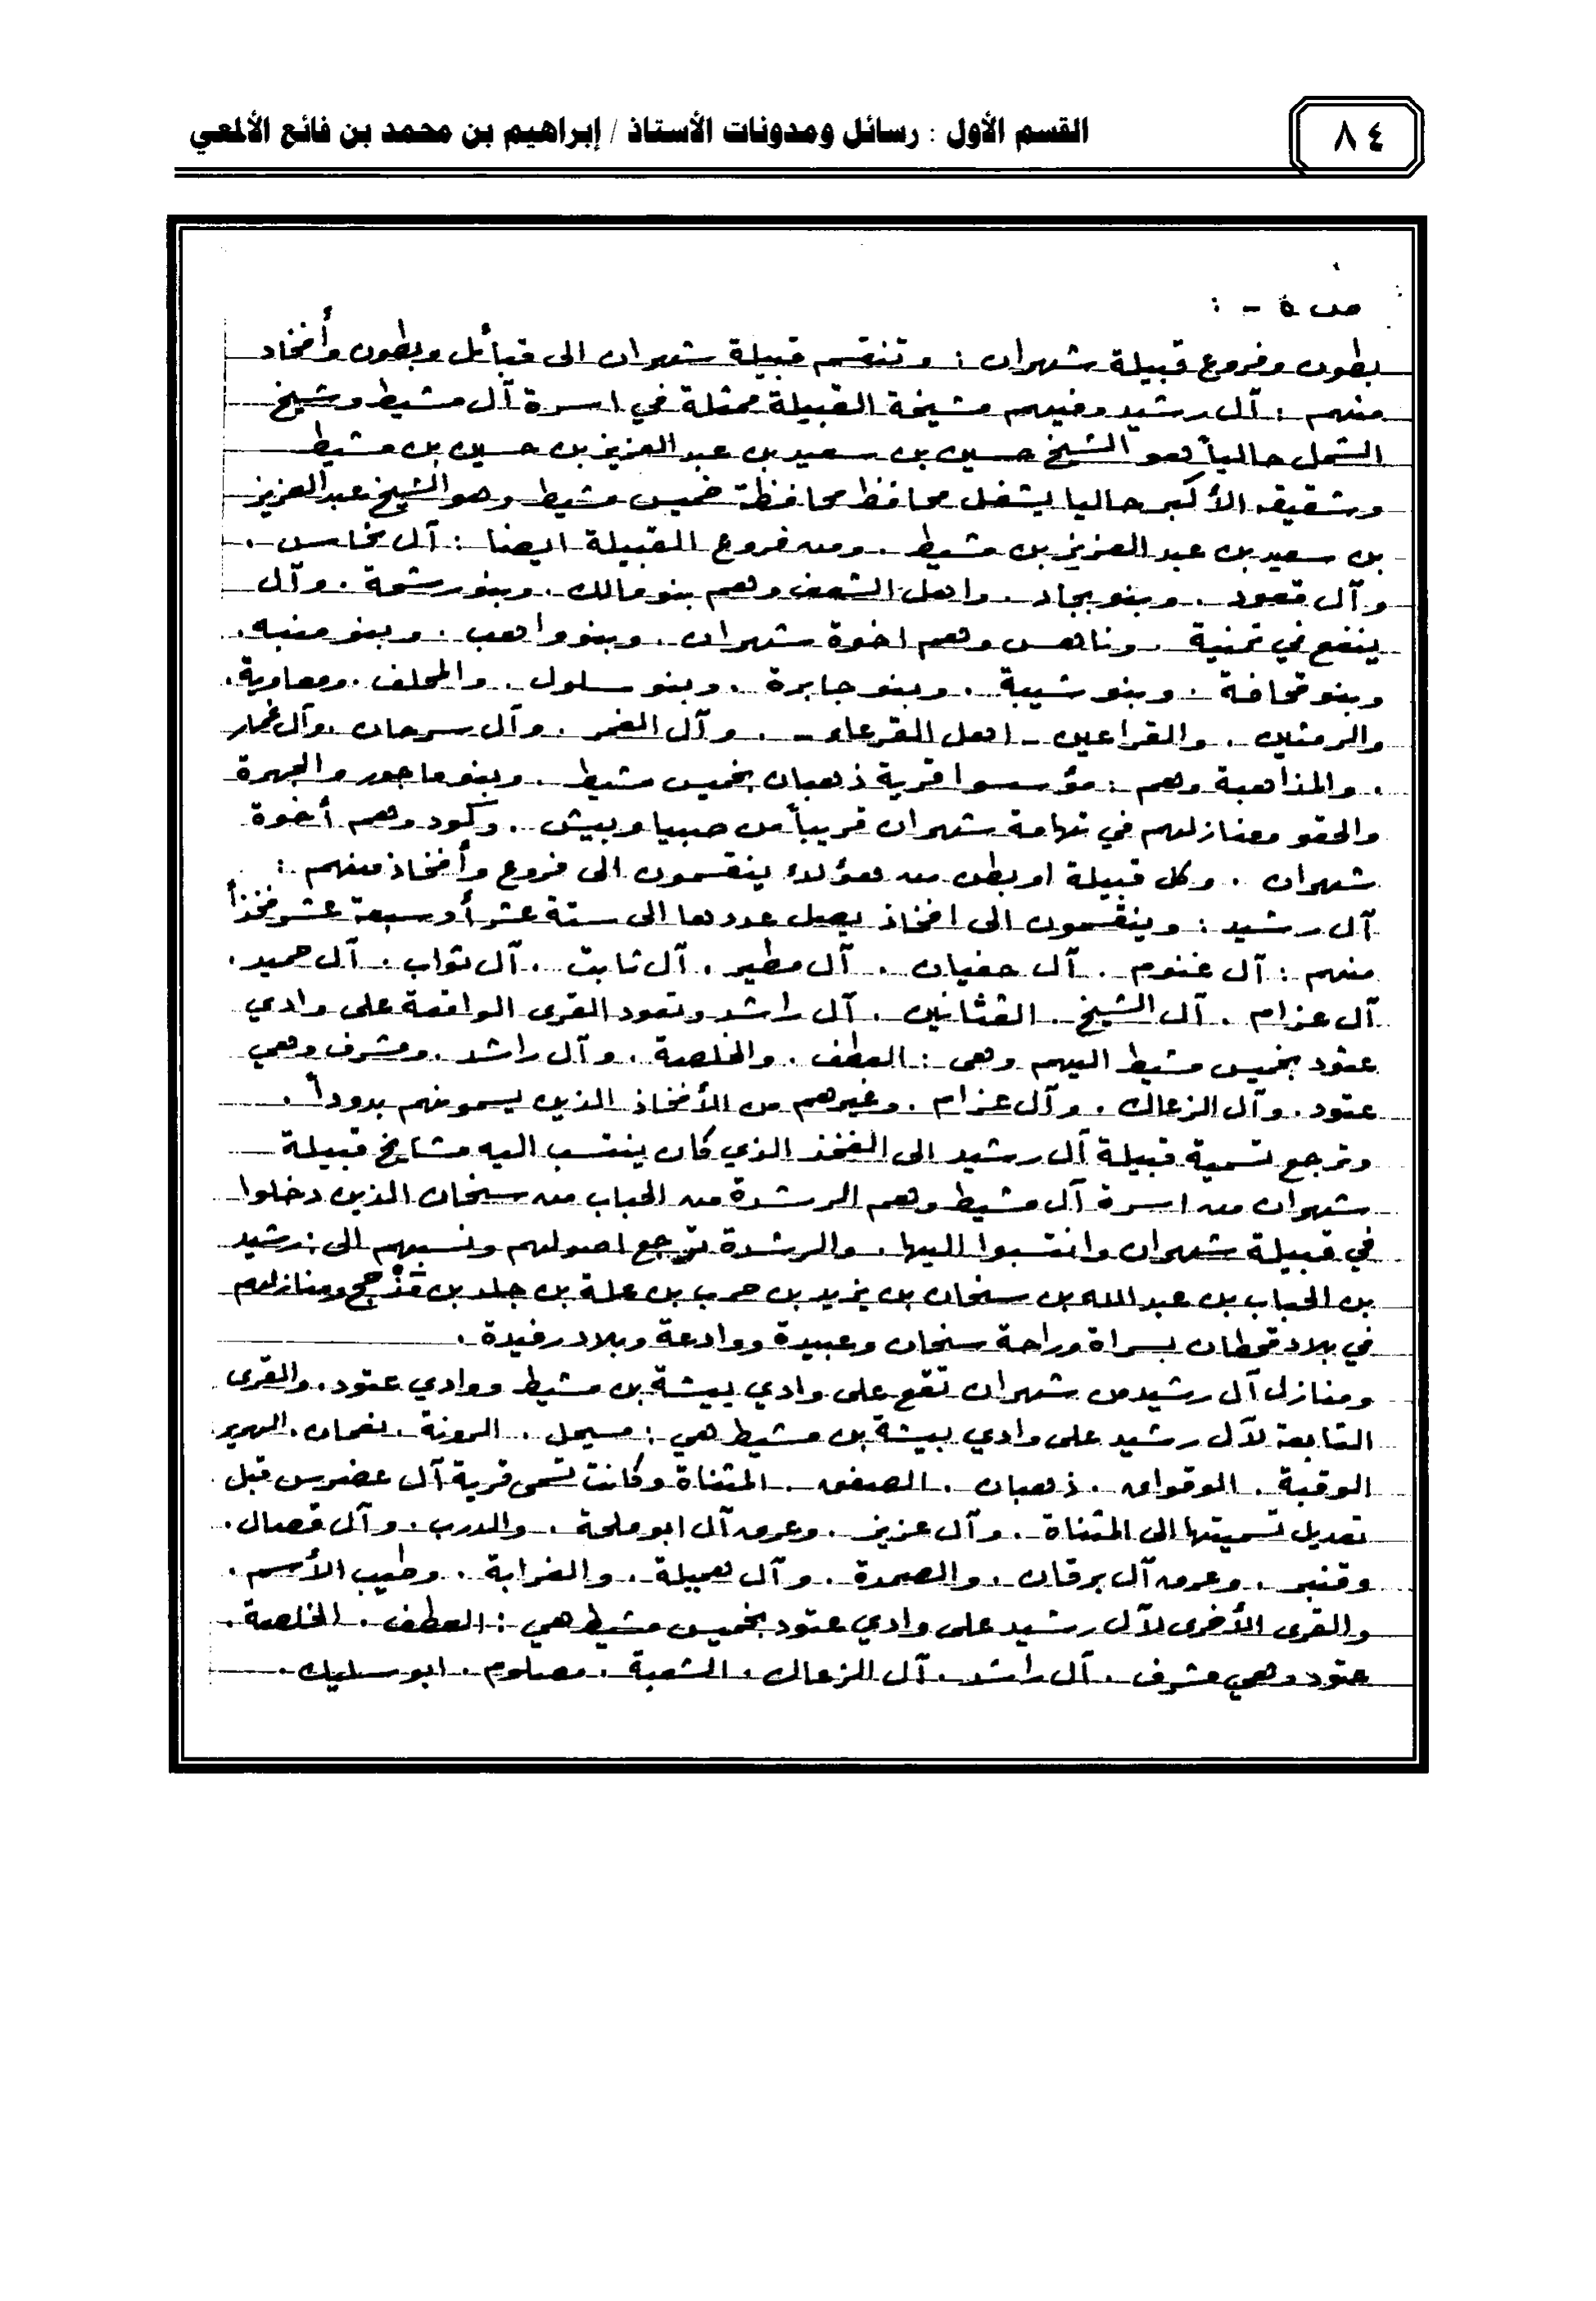 القسم الأول : رسائل ومدونات الأستاذ / إبراهيم بن محمد بن فائع الألمعي
٨٤
ص ٥ - :
بطون وفروع قبيلة شهران : وتنقسم قبيلة شهران الى قبائل وبطون وأفخاد
منهم : آل رشيد وفيهم مشيخة القبيلة ممثلة في اسرة آل مشيط وشيخ
الشمل حالياً هو الشيخ حسين بن سعيد بن عبد العزيز بن حسين بن مشيط
وشقيقه الأكبر حاليا يشغل محافظ محافظة خميس مشيط وهو الشيخ عبد العزيز
بن سعيد بن عبد العزيز بن مشيط . ومن فروع القبيلة ايضا : آل
وآل قعود . وبنو بجاد . واهل الشعف وهم بنو مالك . وبنو رشحة . وآل
ينفع في تمنية . وناهس وهم اخوة شهران . وبنو واهب . وبنو منبه .
وبنو قحافة . وبنو شيبة . وبنو جابرة . وبنو سلول . والمحلف . ومعاوية .
والرمثين . والقراعين - اهل القرعاء - . وآل الغمر . وآل سرحان . وآل غمار
. والمذاهبة وهم : مؤسسوا قرية ذهبان بخميس مشيط . وبنو ماجور والجهرة
والحقو ومنازلهم في تهامة شهران قريباً من صبيا وبيش . وكود وهم أخوة
شهران . وكل قبيلة او بطن من هؤلاء ينقسمون الى فروع وأفخاذ منهم :
آل رشيد : وينقسمون الى افخاذ يصل عددها الى ستة عشر أو سبعة عشر فخذاً
منهم : آل غنوم . آل حفيان . آل مطير . آل ثابت . آل ثواب . آل حميد .
آل عزام . آل الشيخ . القثانين . آل راشد وتعود القرى الواقعة على وادي
عتود بخميس مشيط اليهم وهي : العطف . والخلصة . وآل راشد . ومشرف وهي
عتود . وآل الزعاك . وآل عزام . وغيرهم من الأفخاذ الذين يسمونهم بدوداً .
وترجع تسمية قبيلة آل رشيد الى الفخذ الذي كان ينتسب اليه مشايخ قبيلة
شهران من اسرة آل مشيط وهم الرشدة من الحباب من سنحان الذين دخلوا
في قبيلة شهران وانتسبوا اليها . والرشدة ترجع اصولهم ونسبهم الى : رشيد
بن الحباب بن عبد الله بن سنحان بن يزيد بن حرب بن علة بن جلد بن مذحج ومنازلهم
في بلاد قحطان بسراة وراحة سنحان وعبيدة ووادعة وبلاد رفيدة .
ومنازل آل رشيد من شهران تقع على وادي بيشة بن مشيط ووادي عتود . والقرى
التابعة لآل رشيد على وادي بيشة بن مشيط هي : مسيحل . المونة . نعمان . الهرير
الوقبة . . ذهبان . الصفق . المثناة وكانت تسمى قرية آل عضرس قبل
تعديل تسميتها الى المثناة . وآل عزيز . وعرق آل ابو ملحة . والدرب . وآل قصال .
وقنبر . وعرق آل برقان . والصمدة . وآل هميلة . والغرابة . وطيب الأسم .
والقرى الأخرى لآل رشيد على وادي عتود بخميس مشيط هي : العطف . الخلصة .
عتود وهي مشرف . آل راشد . آل الزعاك . الشعبة . مصلوم . ابو سليك .